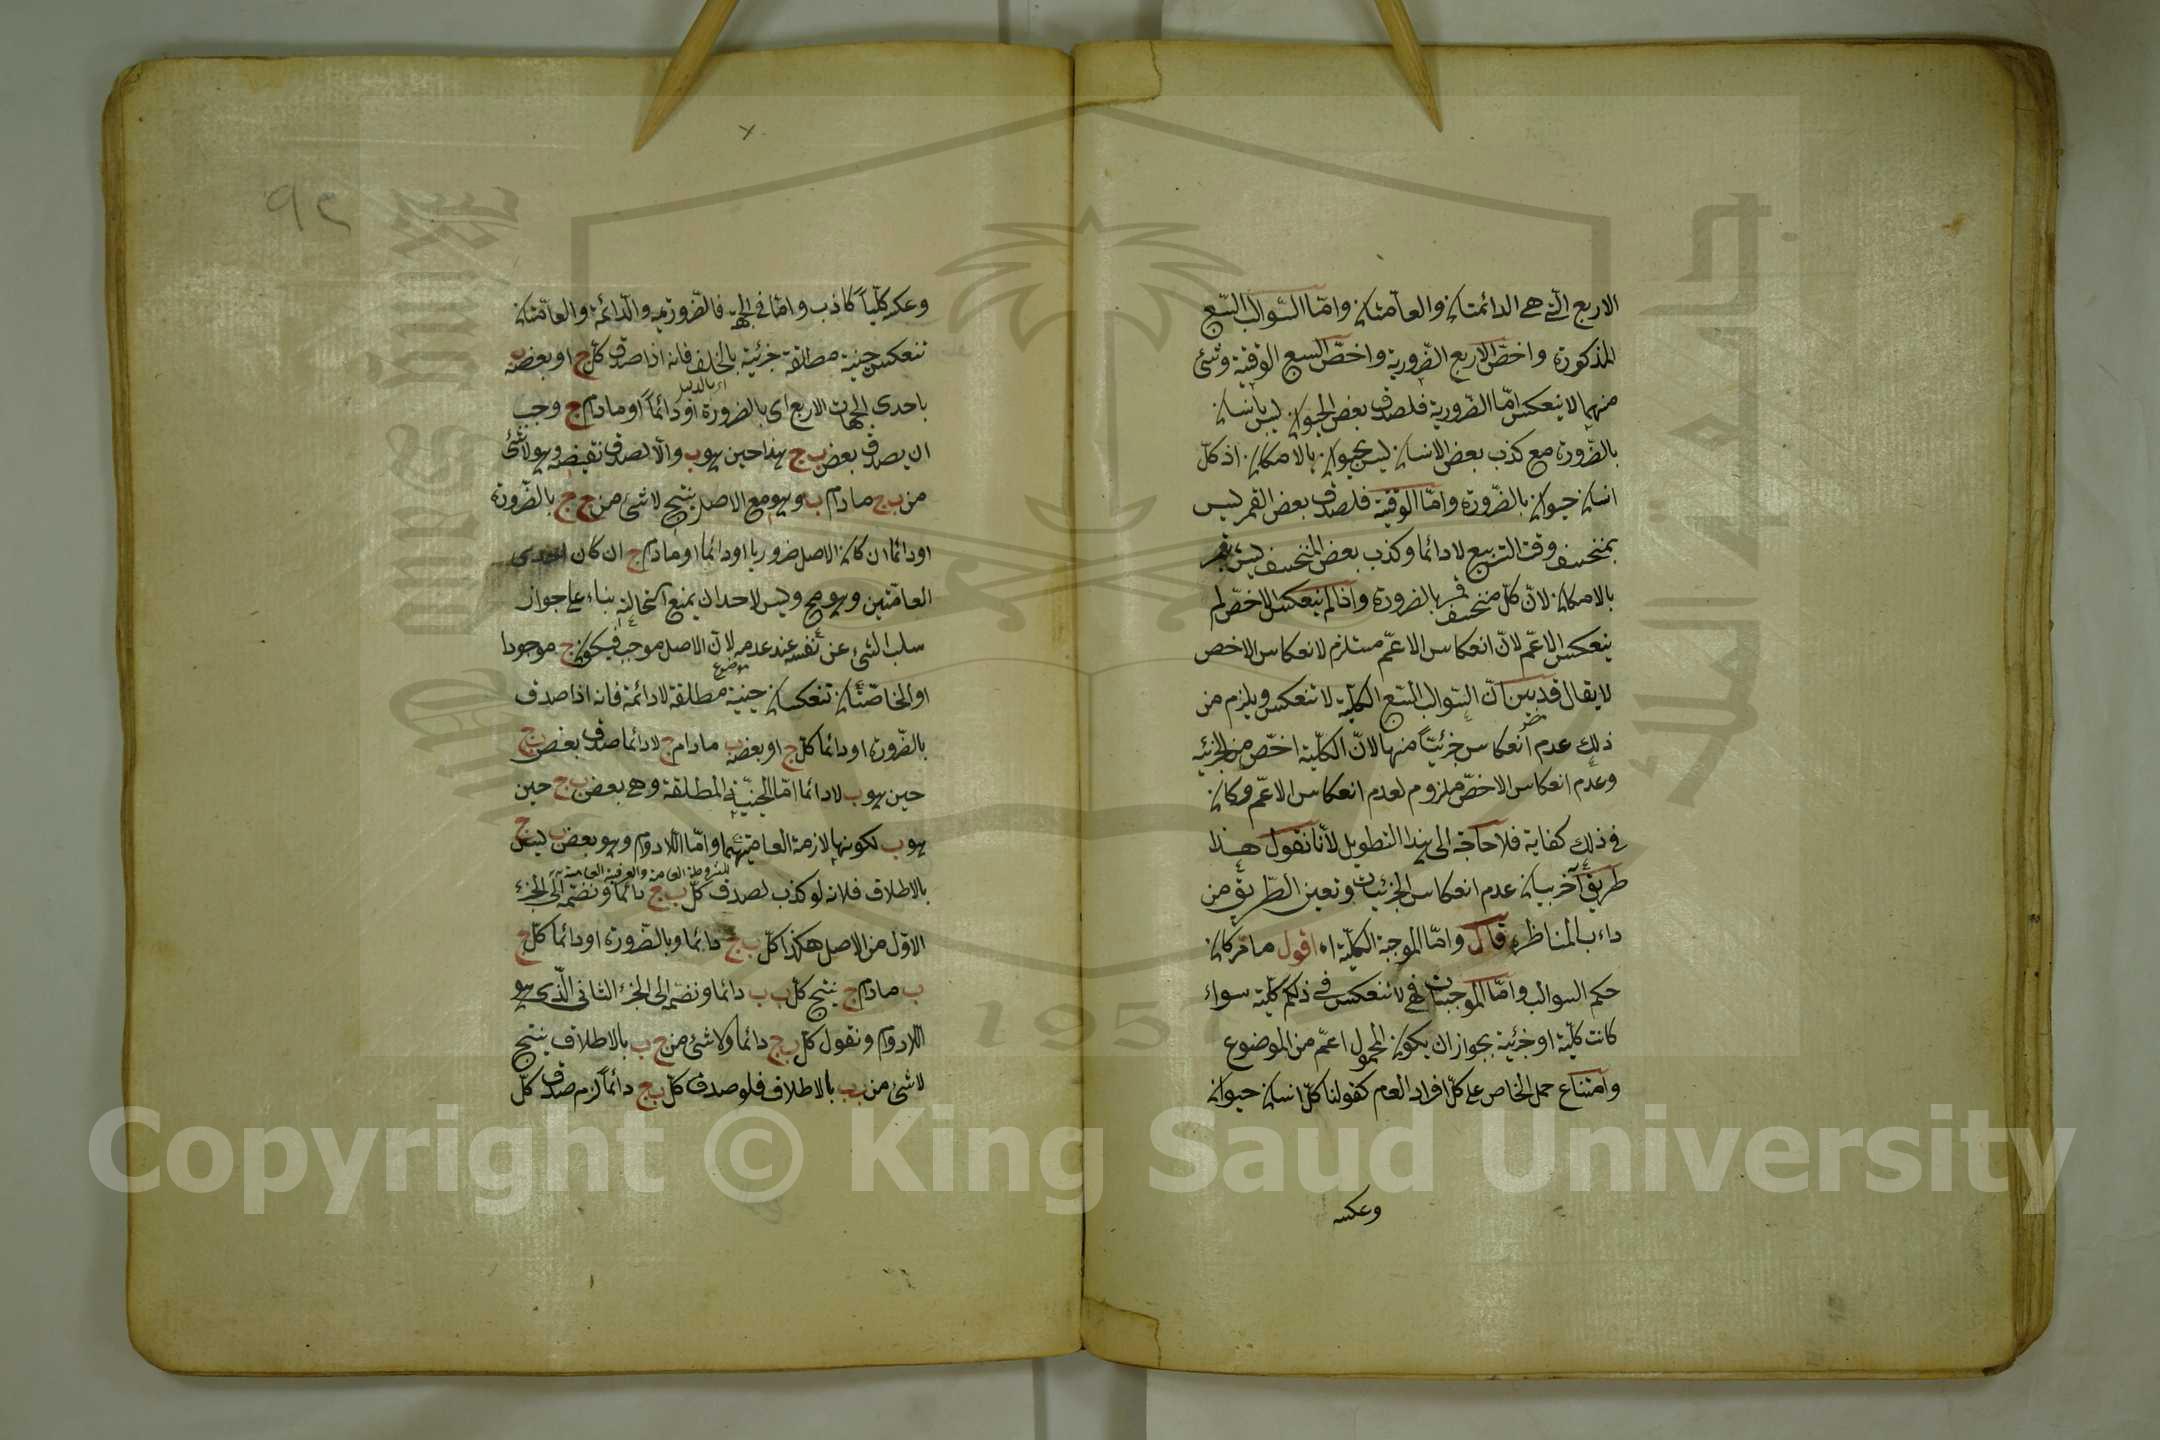 الاربع التي هي الدائمتان والعامتان واما السوالب السبع
المذكورة واخص الاربع الضرورية واخص السبع الوقتية وشئ
منهما لا ينعكس اما الضرورية فلصدق بعض الحيوان ليس بانسان
بالضرورة مع كذب بعض الانسان ليس بحيوان بالامكان اذ كل
انسان حيوان بالضرورة واما الوقتية فلصدق بعض القمر ليس
بمنخسف وقت التربيع لا دائما وكذب بعض المنخسف ليس بقمر
بالامكان لان كل منخسف قمر بالضرورة واذا لم ينعكس الاخص لم
ينعكس الاعم لان انعكاس الاعم مستلزم لانعكاس الاخص
لا يقال قد بين ان السوالب السبع الكلية لا تنعكس ويلزم من
ذلك عدم انعكاس جزئياتها لان الكلية اخص من الجزئيه
وعدم انعكاس الاخص ملزوم لعدم انعكاس الاعم فكان
في ذلك كفاية فلا حاجة الى هذا التطويل لانا نقول هذا
طريق آخر بيان عدم انعكاس الجزئيات وتعين الطريق من
داب المناظرة قال واما الموجبة الكلية اه اقول ما مر كان
حكم السوالب واما الموجبات فهي لا تنعكس في ذلكم كلية سواء
كانت كلية او جزئية بجواز ان يكون المحمول اعم من الموضوع
وامتناع حمل الخاص على كل افراد العام كقولنا كل انسان حيوان
وعكسه
٩٢
وعكسه كليا كاذب واما في الجهة فالضرورية والدائمة والعامتان
تنعكس حينية مطلقة جزئية بالخلف فانه اذا صدق كل ج او بعضه ب
باحدى الجهات الاربع اى بالضرورة او دائما او ما دام ج وجب
ان يصدق بعض ب ج هذا حين هو ب والا لصدق نقيضه وهو لا شئ
من ب ج ما دام ب وهو مع الاصل ينتج لا شئ من ج ج بالضرورة
او دائما ان كان الاصل ضروريا او دائما او ما دام ج ان كان احدى
العامتين وهو مح وليس لاحد ان يمنع استحالته بناء على جواز
سلب الشئ عن نفسه عند عدمه لان الاصل موجب فيكون ج موجودا
او الخاصتان تنعكسان حينية مطلقة لا دائمة فانه اذا صدق
بالضرورة او دائما كل ج او بعضه ب ما دام ج لا دائما صدق بعض ب ج
حين هو ب لا دائما اما الحينية المطلقة وهي بعض ب ج حين
هو ب لكونها لازمة لعاميتهما واما اللا دوام وهو بعض ب ليس ج
المشروطة العامة والعرفية العامة
بالاطلاق فلانه لو كذب لصدق كل ب ج دائما ونضمه الى الجزء
الاول من الاصل هكذا كل ب ج دائما وبالضرورة او دائما كل ج
ب ما دام ج ينتج كل ب ب دائما ونضمه الى الجزء الثانى الذى هو
اللا دوام ونقول كل ب ج دائما ولا شئ من ج ب بالاطلاق ينتج
لا شئ من ب ب بالاطلاق فلو صدق كل ب ج دائما لزم صدق كل
1957
Copyright © King Saud University